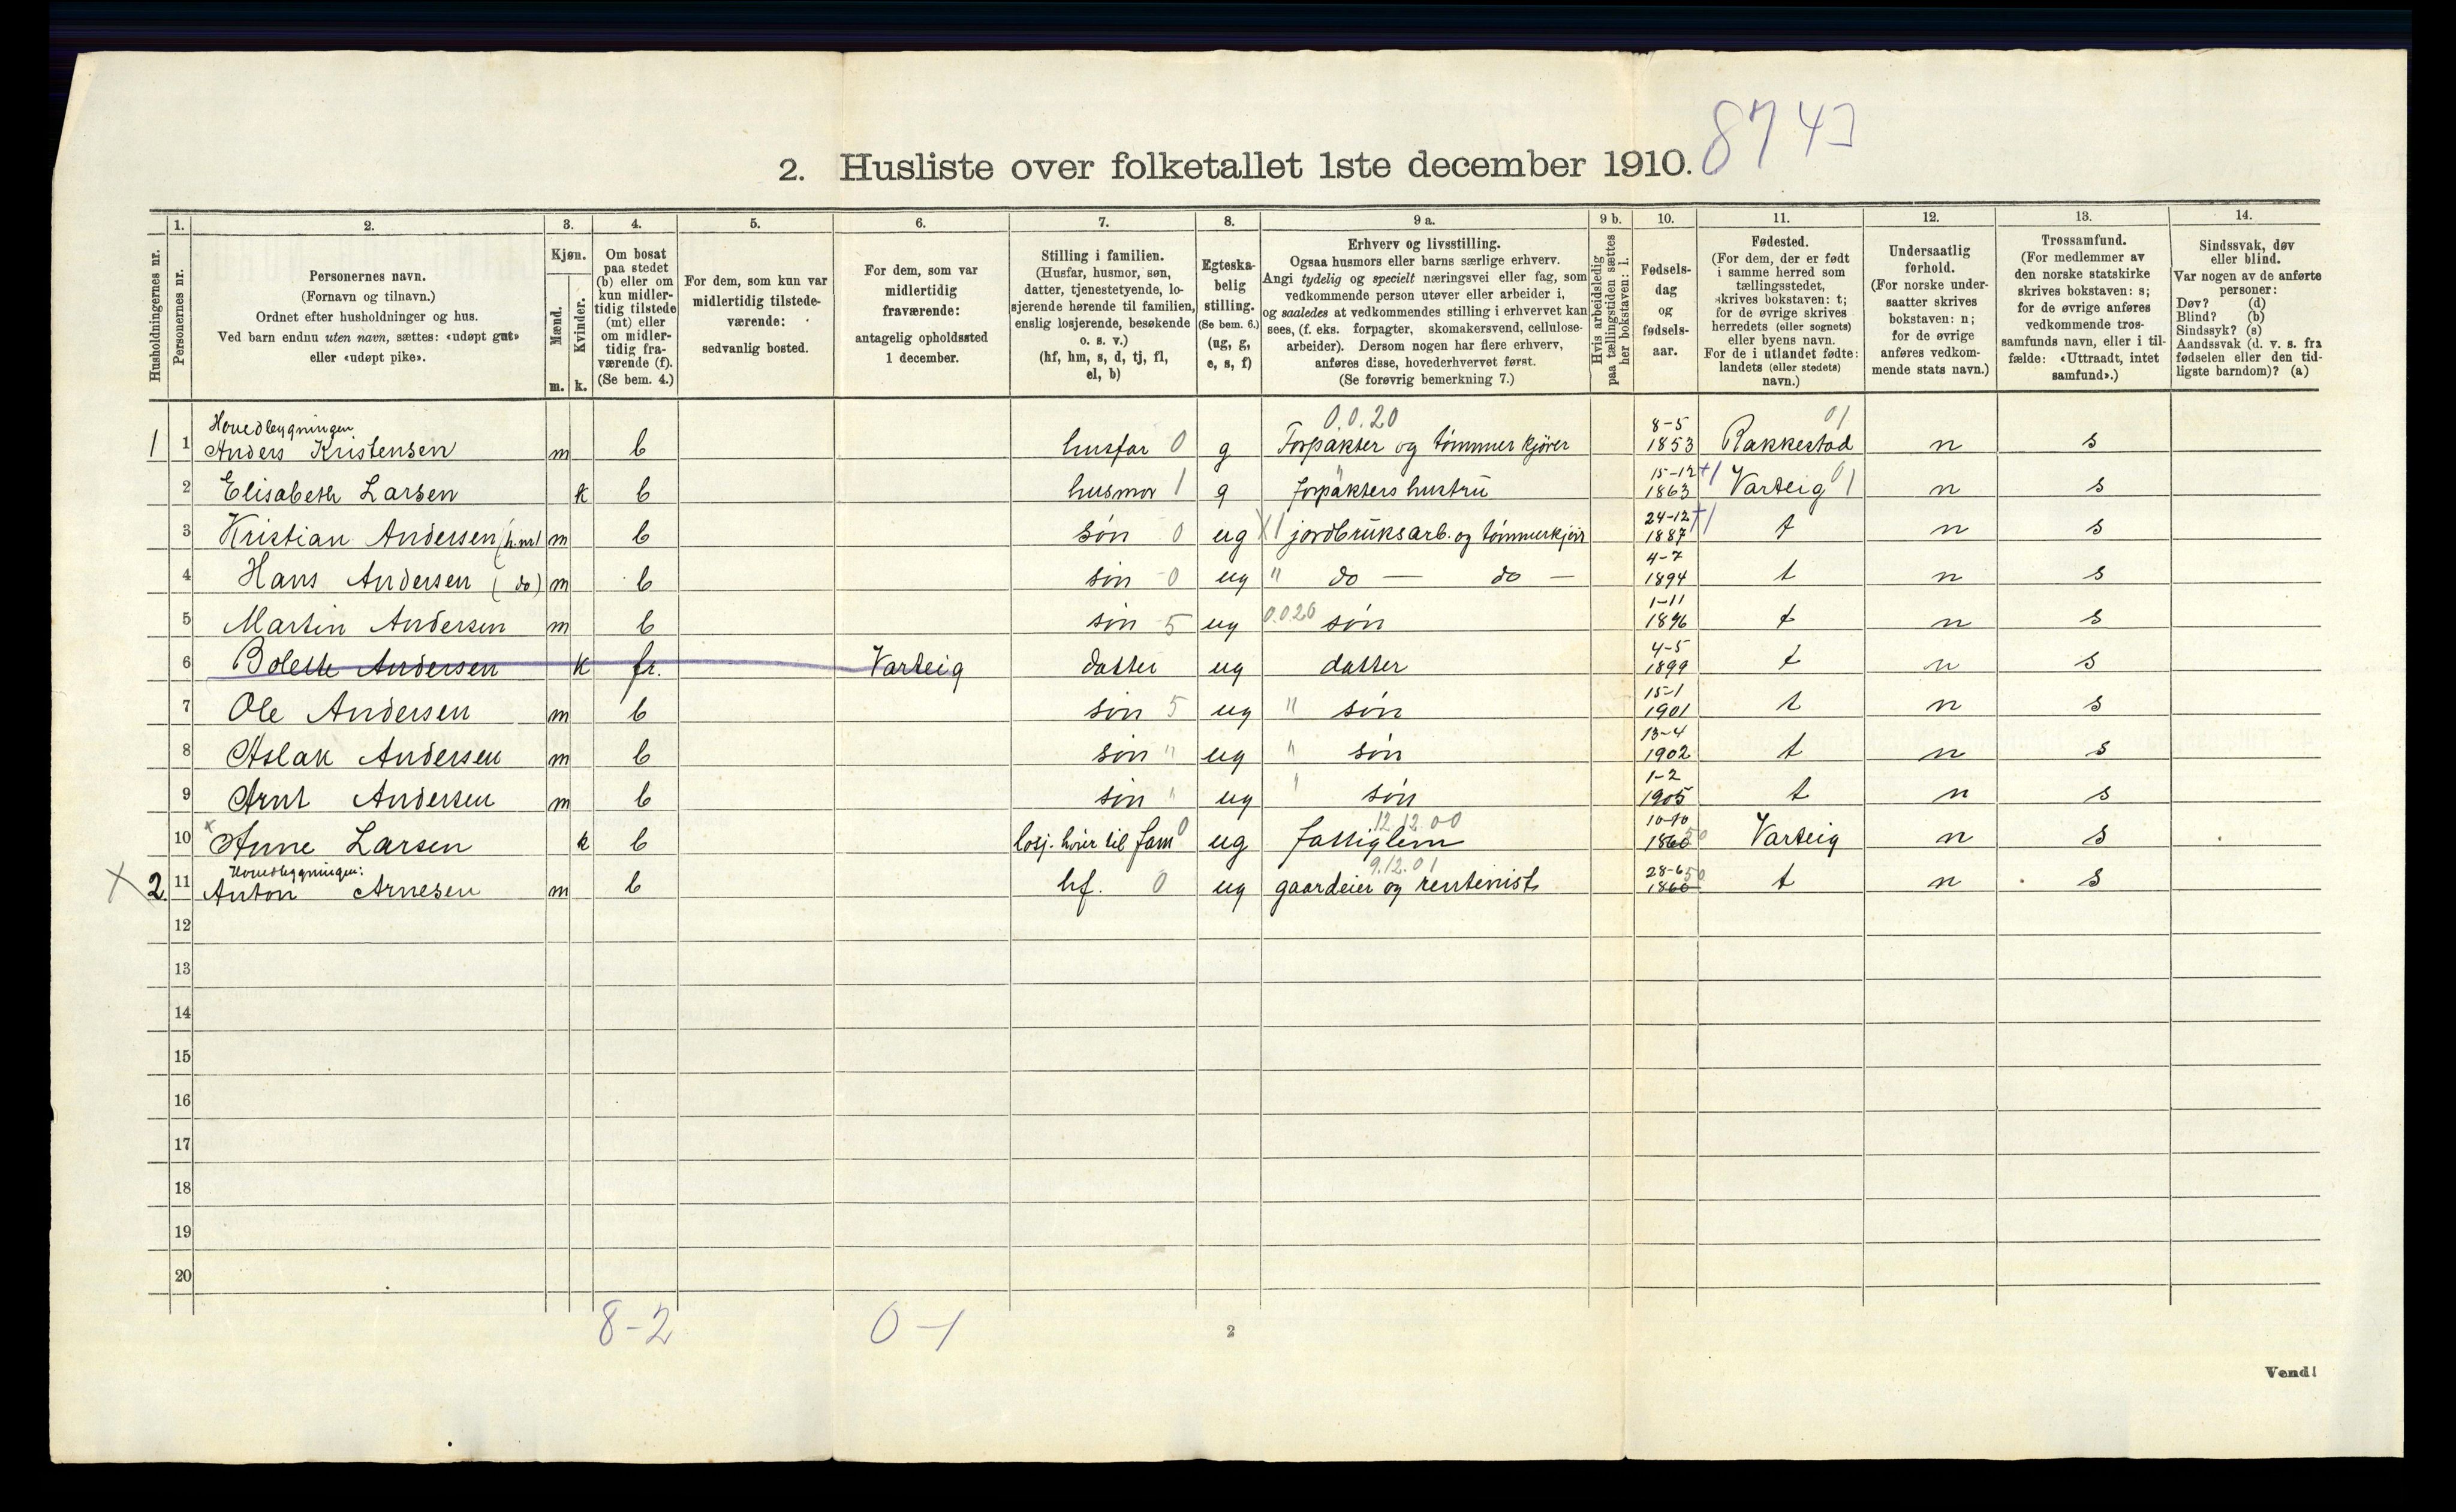 2. Husliste over folketallet 1ste december 1910. 8743
Husholdningernes nr.
1.
Personernes nr.
2.
Personernes navn.
(Fornavn og tilnavn.)
Ordnet efter husholdninger og hus.
Ved barn endnu uten navn, sættes: «udøpt gut»
eller «udøpt pike».
3.
Kjøn.
Mænd.
Kvinder.
m. k.
4.
Om bosat
paa stedet
(b) eller om
kun midler-
tidig tilstede
(mt) eller
om midler-
tidig fra-
værende (f).
(Se bem. 4.)
5.
For dem, som kun var
midlertidig tilstede-
værende:
sedvanlig bosted.
6.
For dem, som var
midlertidig
fraværende:
antagelig opholdssted
1 december.
7.
Stilling i familien.
(Husfar, husmor, søn,
datter, tjenestetyende, lo-
sjerende hørende til familien,
enslig losjerende, besøkende
o. s. v.)
(hf, hm, s, d, tj, fl,
el, b)
8.
Egteska-
belig
stilling.
(Se bem. 6.)
(ug, g,
e, s, f)
9 a.
Erhverv og livsstilling.
Ogsaa husmors eller barns særlige erhverv.
Angi tydelig og specielt næringsvei eller fag, som
vedkommende person utøver eller arbeider i,
og saaledes at vedkommendes stilling i erhvervet kan
sees, (f. eks. forpagter, skomakersvend, cellulose-
arbeider). Dersom nogen har flere erhverv,
anføres disse, hovederhvervet først.
(Se forøvrig bemerkning 7.)
9 b.
Hvis arbeidsledig
paa tællingstiden sættes
her bokstaven: l.
10.
Fødsels-
dag
og
fødsels-
aar.
11.
Fødested.
(For dem, der er født
i samme herred som
tællingsstedet,
skrives bokstaven: t;
for de øvrige skrives
herredets (eller sognets)
eller byens navn.
For de i utlandet fødte:
landets (eller stedets)
navn.)
12.
Undersaatlig
forhold.
(For norske under-
saatter skrives
bokstaven: n;
for de øvrige
anføres vedkom-
mende stats navn.)
13.
Trossamfund.
(For medlemmer av
den norske statskirke
skrives bokstaven: s;
for de øvrige anføres
vedkommende tros-
samfunds navn, eller i til-
fælde: «Uttraadt, intet
samfund».)
14.
Sindssvak, døv
eller blind.
Var nogen av de anførte
personer:
Døv? (d)
Blind? (b)
Sindssyk? (s)
Aandssvak (d. v. s. fra
fødselen eller den tid-
ligste barndom)? (a)
Hovedbygningen 0.0.20 8-5 01
1 1 Anders Kristensen m b husfar 0 g Forpakter og tømmerkjører 1853 Rakkestad n s
15-12 +1 01
2 Elisabeth Larsen k b husmor 1 g " forpakters hustru 1863 Varteig n s
24-12 +1
3 Kristian Andersen (h. nr 1 m b søn 0 ug X 1 jordbruksarb. og tømmerkjør 1887 t n s
4-7
4 Hans Andersen (do) m b søn 0 ug " do — do — 1894 t n s
1-11
5 Martin Andersen m b søn 5 ug 0.020 søn 1896 t n s
4-5
6 Bolette Andersen k fr. Varteig datter ug datter 1899 t n s
15-1
7 Ole Andersen m b søn 5 ug " søn 1901 t n s
13-4
8 Aslak Andersen m b søn " ug " søn 1902 t n s
1-2
9 Arnt Andersen m b søn " ug " søn 1905 t n s
12 12 00 10-10
10 x Anne Larsen k b losj. hører til fam 0 ug fattiglem 1860 50 Varteig n s
Hovedbygningen: 9.12.01 28-6
X 2. 11 Anton Arnesen m b hf. 0 ug gaardeier og rentenist 1860 50 t n s
12
13
14
15
16
17
18
19
20
8-2 0-1
2
Vend!